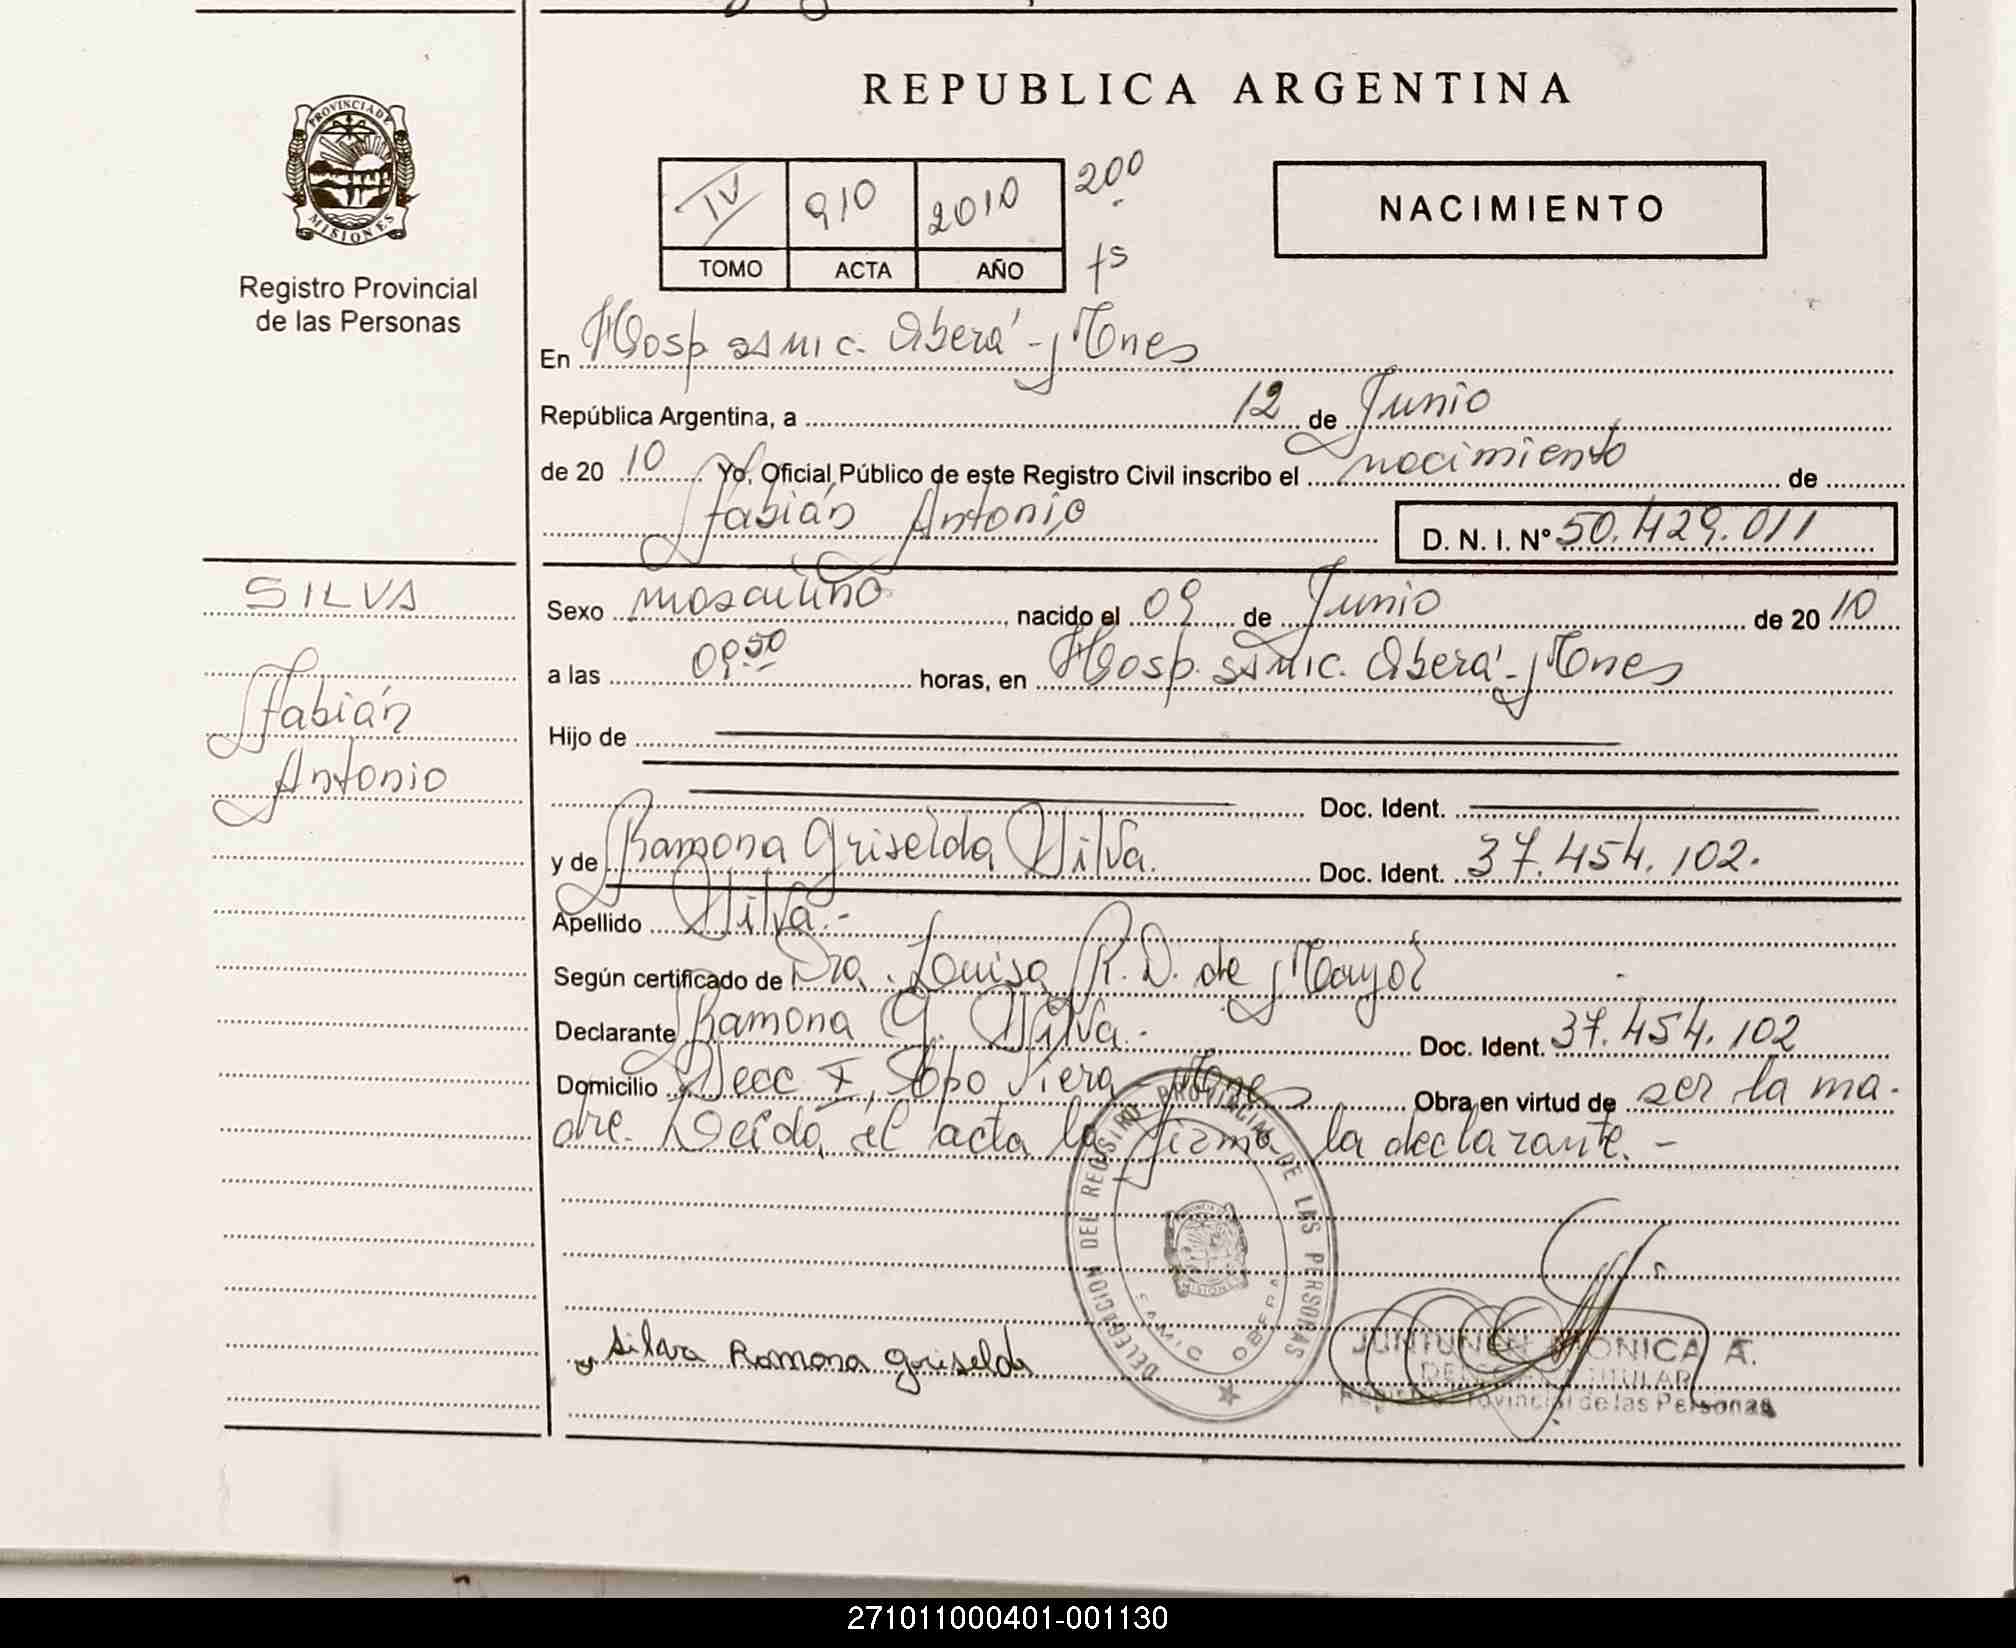 REPUBLICA ARGENTINA
PROVINCIA DE
MISIONES
Registro Provincial
de las Personas
IV 910 2010 200
TOMO ACTA AÑO fs
NACIMIENTO
En Hosp. SAMIC. Oberá - Mnes
República Argentina, a 12 de Junio
de 2010 Yo, Oficial Público de este Registro Civil inscribo el nacimiento de
Fabián Antonio D. N. I. Nº 50.429.011
SILVA
Fabián
Antonio
Sexo masculino, nacido el 09 de Junio de 2010
a las 09 50 horas, en Hosp. SAMIC. Oberá - Mnes
Hijo de
Doc. Ident.
y de Ramona Griselda Silva. Doc. Ident. 37.454.102.
Apellido Silva.-
Según certificado de Dra. Luisa R. D. de Mayol
Declarante Ramona G. Silva.- Doc. Ident. 37.454.102
Domicilio Secc X, Sopo Viera - Mnes Obra en virtud de ser la ma-
dre. Leída el acta la firma la declarante.-
DELEGACION DEL REGISTRO PROVINCIAL DE LAS PERSONAS
MISIONES
SAMIC OBERA
Silva Ramona Griselda
JUNTUNEN MONICA A.
TITULAR
Registro Provincial de las Personas
271011000401-001130